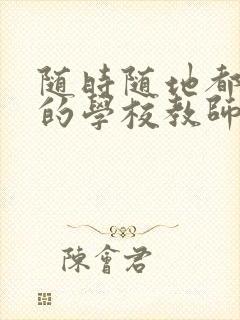 随時随地都
的學校教師
陳會君